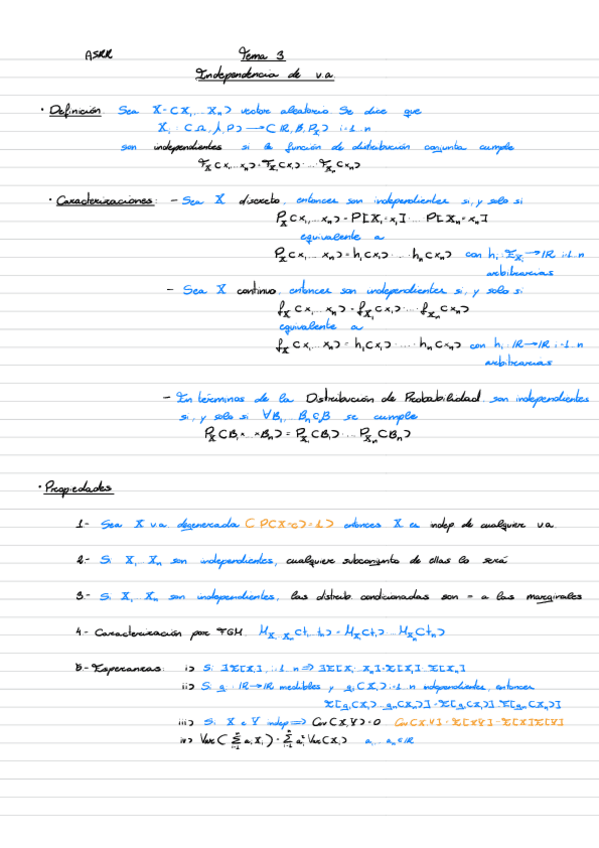 ASRR
Tema 3
Independencia de v.a.
· Definición: Sea X=(X₁,...,Xₙ) vector aleatorio. Se dice que
Xᵢ: (Ω, A, P) → (ℝ, B, Pₓ) i=1...n
son independientes si la función de distribución conjunta cumple
Fₓ(x₁,...,xₙ) = Fₓ₁(x₁)·...·Fₓₙ(xₙ)
· Caracterizaciones: - Sea X discreto, entonces son independientes si, y solo si
Pₓ(x₁,...,xₙ) = P[X₁=x₁]·...·P[Xₙ=xₙ]
equivalente a
Pₓ(x₁,...,xₙ) = h₁(x₁)·...·hₙ(xₙ) con hᵢ: Eₓᵢ → ℝ i=1...n
arbitrarias
- Sea X continuo, entonces son independientes si, y solo si
fₓ(x₁,...,xₙ) = fₓ₁(x₁)·...·fₓₙ(xₙ)
equivalente a
fₓ(x₁,...,xₙ) = h₁(x₁)·...·hₙ(xₙ) con hᵢ: ℝ → ℝ i=1...n
arbitrarias
- En términos de la Distribución de Probabilidad: son independientes
si, y solo si ∀B₁,...,Bₙ∈B se cumple
Pₓ(B₁×...×Bₙ) = Pₓ₁(B₁)·...·Pₓₙ(Bₙ)
· Propiedades
1.- Sea X v.a. degenerada (P(X=c)=1) entonces X es indep. de cualquier v.a.
2.- Si X₁...Xₙ son independientes, cualquier subconjunto de ellas lo será
3.- Si X₁...Xₙ son independientes, las distrib. condicionadas son = a las marginales
4.- Caracterización por FGM: Mₓ₁...ₓₙ(t₁...tₙ) = Mₓ₁(t₁)...Mₓₙ(tₙ)
5.- Esperanzas: i) Si ∃E[Xᵢ], i=1...n ⇒ ∃E[X₁...Xₙ]=E[X₁]...E[Xₙ]
ii) Si gᵢ: ℝ→ℝ medibles y gᵢ(Xᵢ) i=1...n independientes, entonces
E[g₁(X₁)...gₙ(Xₙ)] = E[g₁(X₁)]...E[gₙ(Xₙ)]
iii) Si X e Y indep ⇒ Cov(X,Y)=0 Cov(X,Y) = E[XY] - E[X]E[Y]
iv) Var(∑ᵢ₌₁ⁿ aᵢXᵢ) = ∑ᵢ₌₁ⁿ aᵢ² Var(Xᵢ) a₁...aₙ∈ℝ